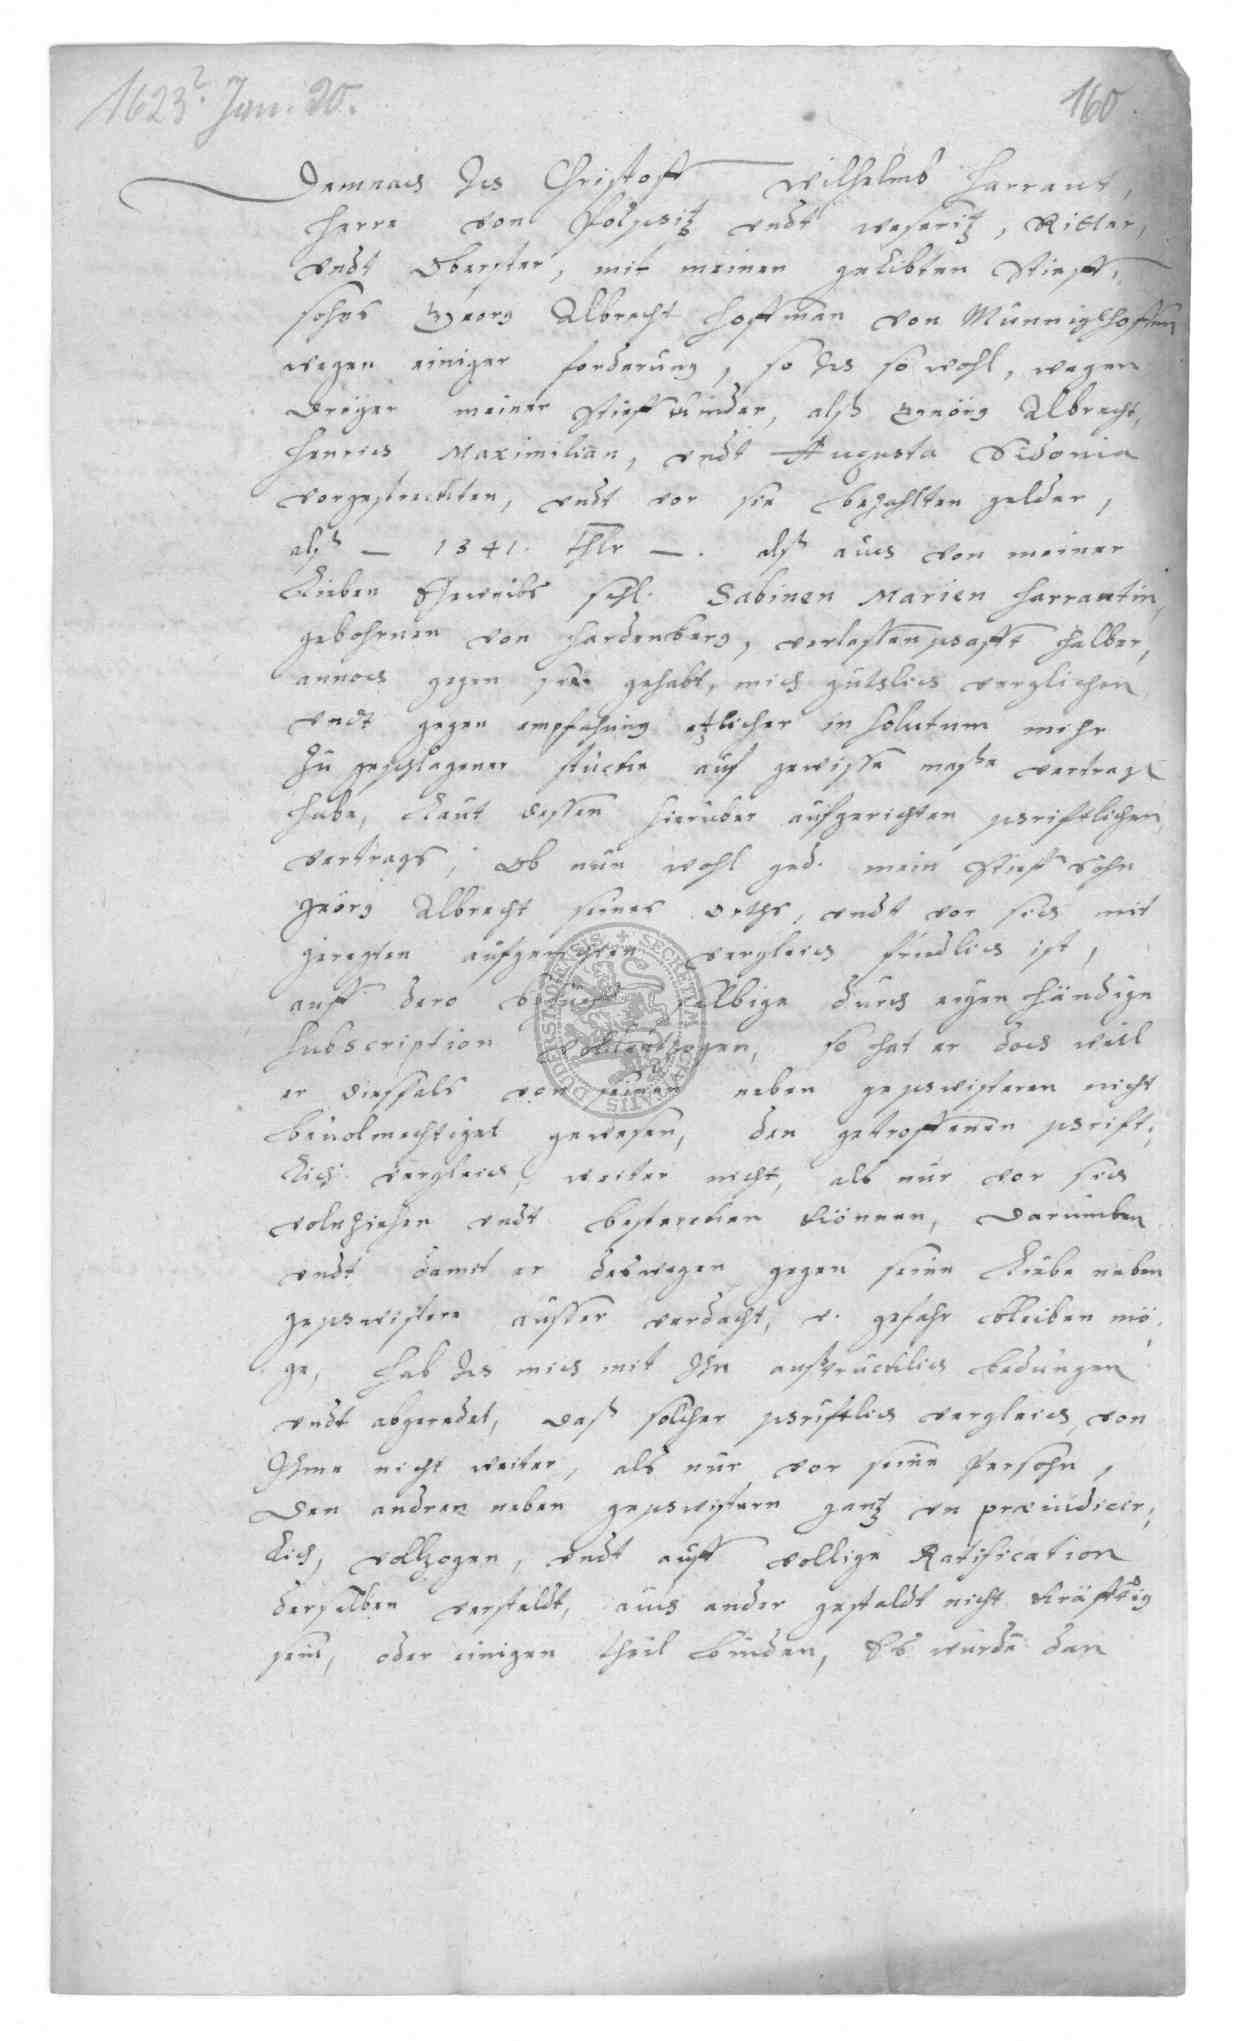 1623? Jan. 20.
160.
Demnach Ich Christoff Wilhelmb Harrant,
Herre von Polschitz undt Weseritz, Ritter,
undt Oberster, mit meinen geliebten Stieff-
sohns Georg Albrecht Hoffman von Münnighhoffen
wegen einiger forderung, so Ich so wohl, wegen
dreyer meiner Stieff Kinder, alß Geörg Albrecht,
Henrich Maximilian, undt Augusta Sidonia
vorgestreckten, undt vor sie bezahlten gelder,
alß — 1341. thlr —. alß auch von meiner
Lieben Eheweibs sehl. Sabinen Marien Harrantin,
gebohrnen von Hardenberg, verlassenschafft halber,
annoch gegen sie gehabt, mich gütslich verglichen
undt gegen empfahung etzlicher in solutum mihr
zu geschlagener stücke auf gewisse maße vertragen
habe, Laut dessen hierüber aufgerichten schriftlichen
vertrags; Ob nun wohl ged. mein Stieff Sohn
Geörg Albrecht seines orths, undt vor sich mit
geregten aufgerichten vergleich friedlich ist,
auff dero selbige durch eigen händige
Subscription vollenzogen, so hat er doch weil
er diesfals von seinen neben geschwisteren nicht
bevolmechtiget gewesen, den getroffenen schrift-
lich vergleich, weiter nicht, als nur vor sich
volnziehen undt bestercken können, Darumben
undt damit er deswegen gegen seine Liebe neben
geschwistere ausser verdacht, v. gefahr bleiben mö-
ge, hab Ich mich mit Ihn außtrucklich bedungen
undt abgeredet, daß solcher schriftlich vergleich, von
Ihme nicht weiter, als nur vor seine Persohn,
Den andren neben geschwistern gantz un præiudicir-
lich, vollzogen, undt auff vollige Ratification
derselben verstaldt, auch ander gestaldt nicht kräfftig
sein, oder einigen theil binden, Es würde dan